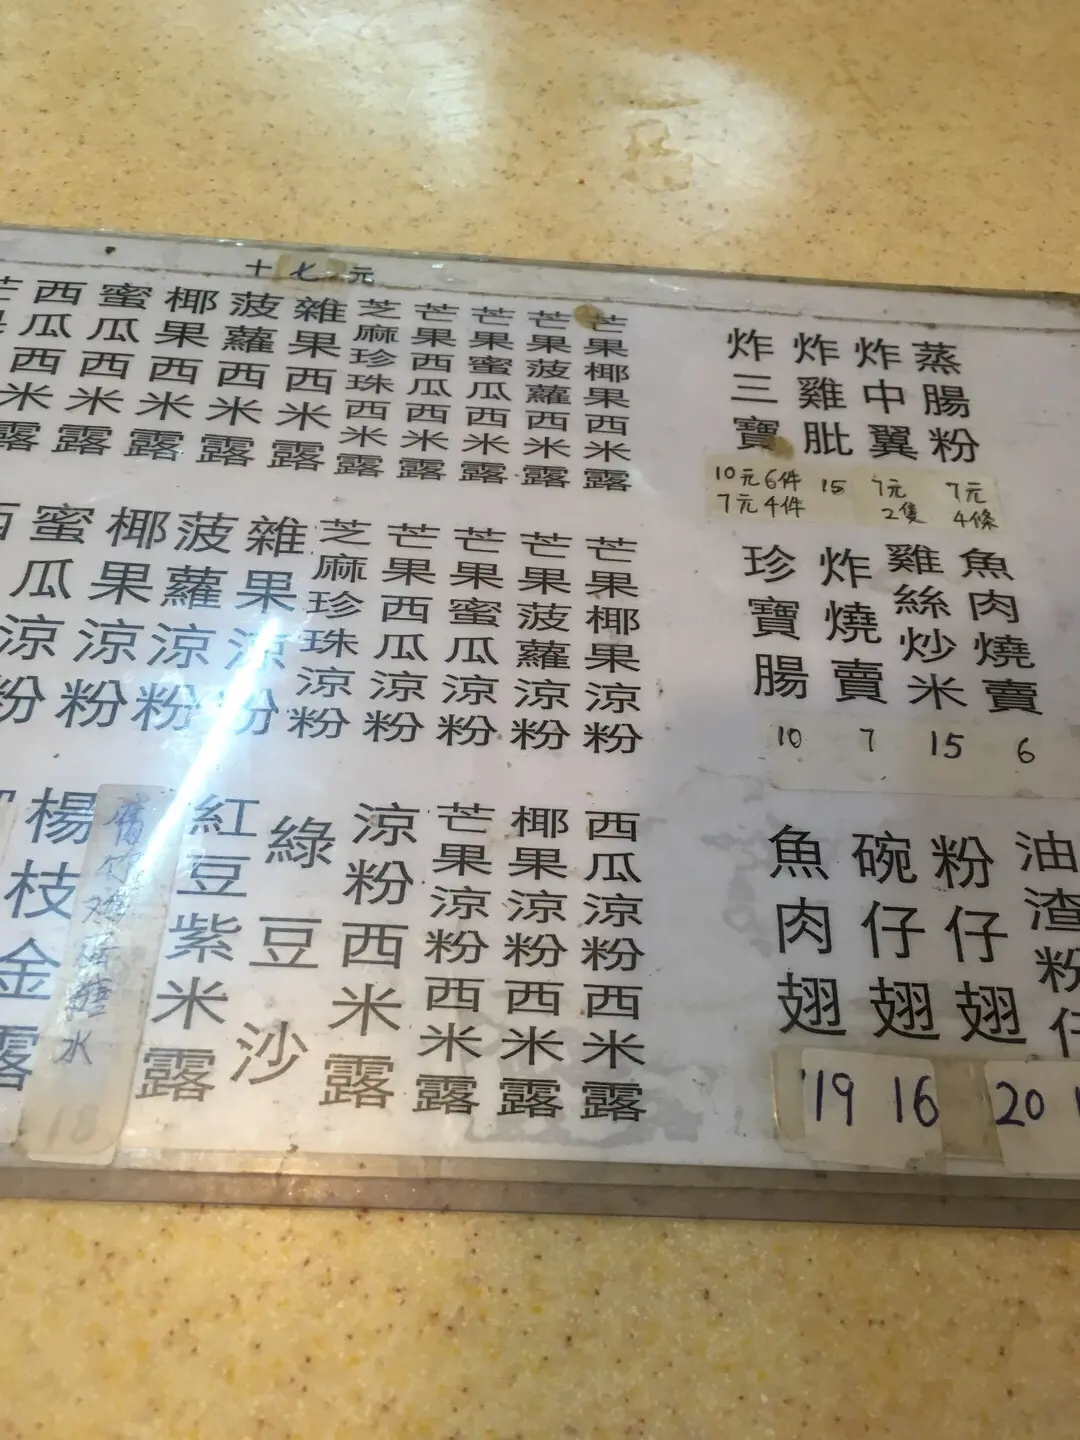 十七元
西瓜西米露
蜜瓜西米露
椰果西米露
菠蘿西米露
雜果西米露
芝麻珍珠西米露
芒果西瓜西米露
芒果蜜瓜西米露
芒果菠蘿西米露
芒果椰果西米露
蜜瓜涼粉
椰果涼粉
菠蘿涼粉
雜果涼粉
芝麻珍珠涼粉
芒果西瓜涼粉
芒果蜜瓜涼粉
芒果菠蘿涼粉
芒果椰果涼粉
楊枝金露
腐竹
水
18
紅豆紫米露
綠豆沙
涼粉西米露
芒果涼粉西米露
椰果涼粉西米露
西瓜涼粉西米露
炸三寶
10元6件
7元4件
炸雞肶
15
炸中翼
7元
2隻
蒸腸粉
7元
4條
珍寶腸
10
炸燒賣
7
雞絲炒米
15
魚肉燒賣
6
魚肉翅
19
碗仔翅
16
粉仔翅
20
油渣粉仔